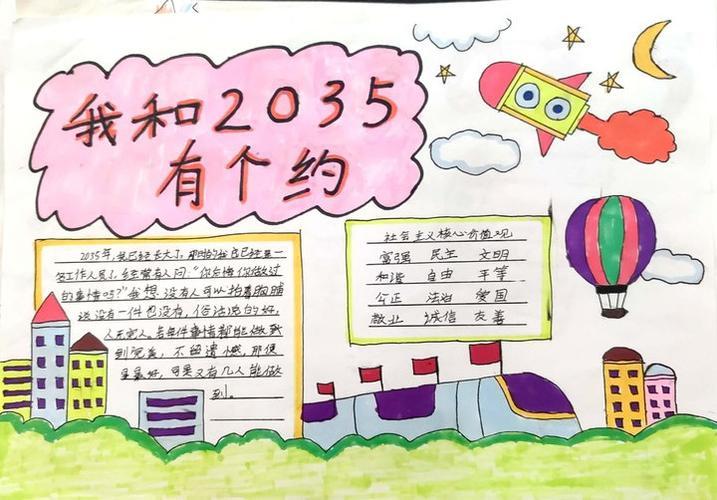 我和2035
有个约
2035年,我已经长大了,那时的我自已经是一
名工作人员了,经常有人问:“你后悔你做过
的事情吗?”我想,没有人可以拍着胸脯
说没有一件也没有,俗话说的好,
人无完人。若每件事情都能做到
到完美,不留遗憾,那便
是最好,可是又有几人能做
到。
社会主义核心价值观
富强 民主 文明
和谐 自由 平等
公正 法治 爱国
敬业 诚信 友善